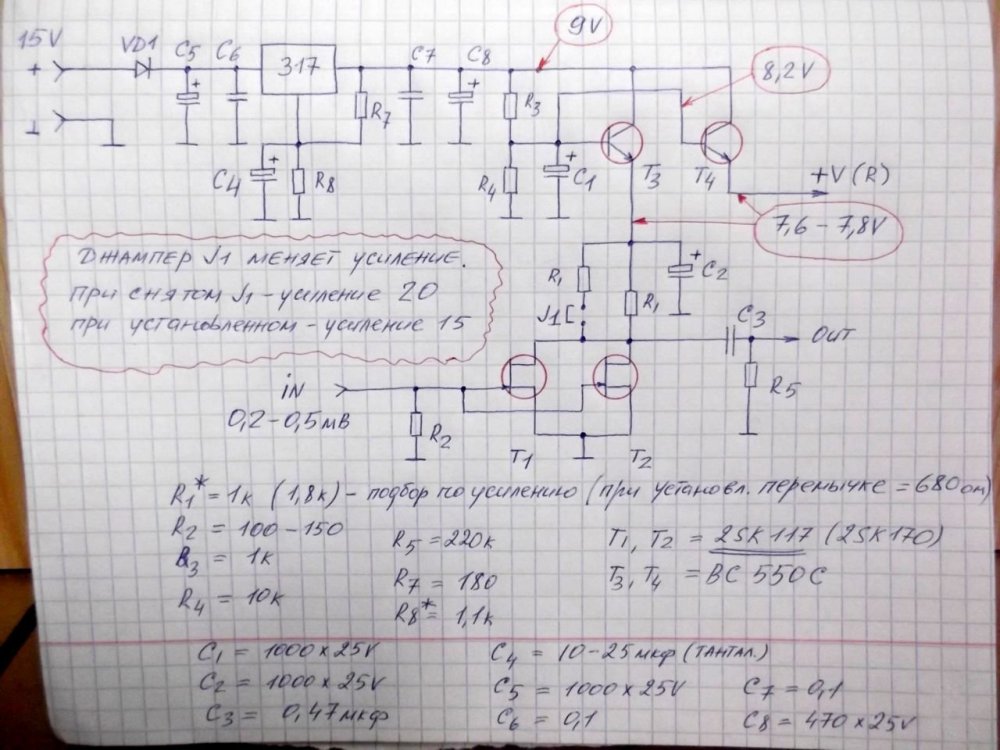 15V
VD1
C5
C6
317
C7
C8
9V
8,2V
+
⊥
R7
R3
C4
+
R8
R4
+
C1
T3
T4
+V (R)
7,6 – 7,8V
Джампер J1 меняет усиление.
При снятом J1 – усиление 20
при установленном – усиление 15
R1
J1
R1
+
C2
C3
OUT
R5
iN
0,2 – 0,5 мВ
R2
T1
T2
R1* = 1к (1,8к) – подбор по усилению (при установл. перемычке = 680 ом)
R2 = 100 – 150
R3 = 1к
R4 = 10к
R5 = 220к
R7 = 180
R8* = 1,1к
T1, T2 = 2SK 117 (2SK170)
T3, T4 = BC 550C
C1 = 1000 x 25V
C2 = 1000 x 25V
C3 = 0,47 мкф
C4 = 10 – 25 мкф (тантал.)
C5 = 1000 x 25V
C6 = 0,1
C7 = 0,1
C8 = 470 x 25V